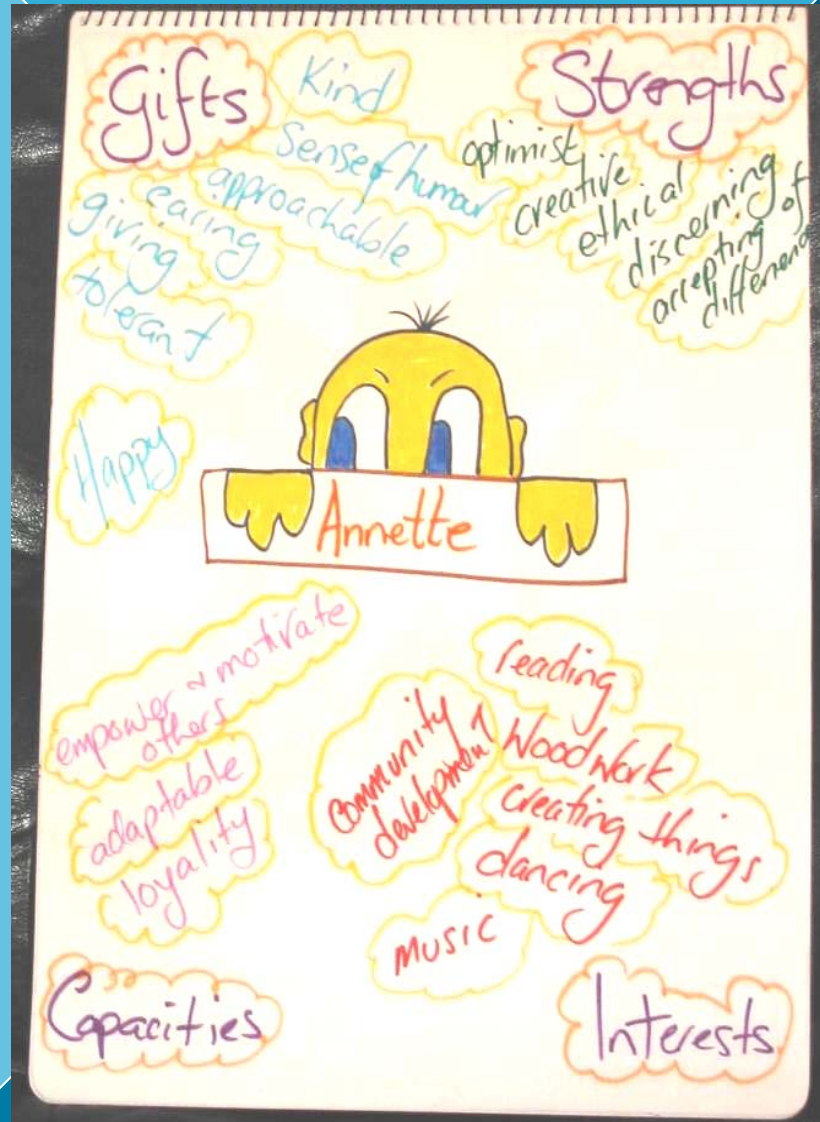 Gifts
Kind
Sense of humour
approachable
caring
giving
tolerant
Happy
Strengths
optimist
creative
ethical
discerning
accepting of
difference
Annette
empower & motivate
others
adaptable
loyality
Capacities
reading
Woodwork
community
development
creating things
dancing
music
Interests